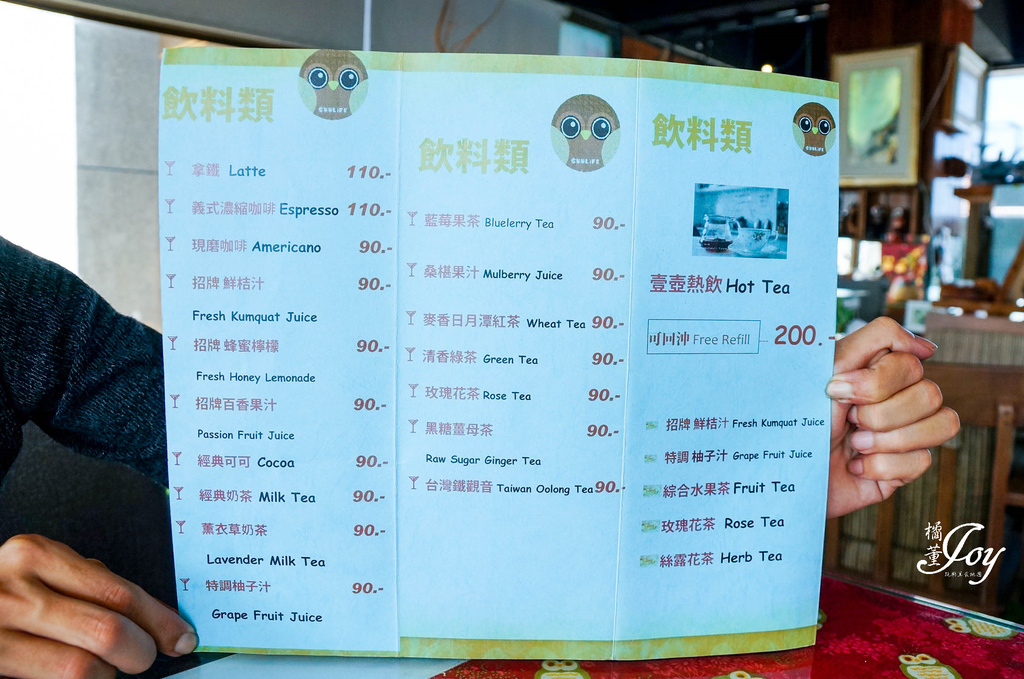 飲料類
拿鐵 Latte 110.-
義式濃縮咖啡 Espresso 110.-
現磨咖啡 Americano 90.-
招牌 鮮桔汁 90.-
Fresh Kumquat Juice
招牌 蜂蜜檸檬 90.-
Fresh Honey Lemonade
招牌百香果汁 90.-
Passion Fruit Juice
經典可可 Cocoa 90.-
經典奶茶 Milk Tea 90.-
薰衣草奶茶 90.-
Lavender Milk Tea
特調柚子汁 90.-
Grape Fruit Juice
飲料類
藍莓果茶 Bluelerry Tea 90.-
桑椹果汁 Mulberry Juice 90.-
麥香日月潭紅茶 Wheat Tea 90.-
清香綠茶 Green Tea 90.-
玫瑰花茶 Rose Tea 90.-
黑糖薑母茶 90.-
Raw Sugar Ginger Tea
台灣鐵觀音 Taiwan Oolong Tea 90.-
飲料類
壹壺熱飲 Hot Tea
可回沖 Free Refill 200.-
招牌 鮮桔汁 Fresh Kumquat Juice
特調 柚子汁 Grape Fruit Juice
綜合水果茶 Fruit Tea
玫瑰花茶 Rose Tea
絲露花茶 Herb Tea
橘薰 Joy